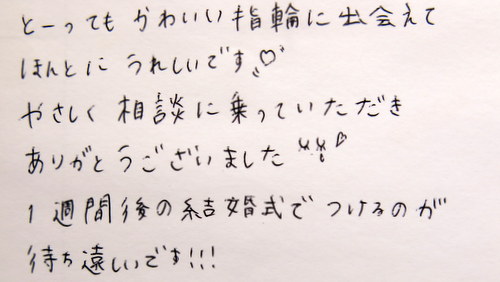 とーっても かわいい指輪に出会えて
ほんとに うれしいです♡
やさしく 相談に乗っていただき
ありがとうございました
1週間後の結婚式で つけるのが
待ち遠しいです!!!